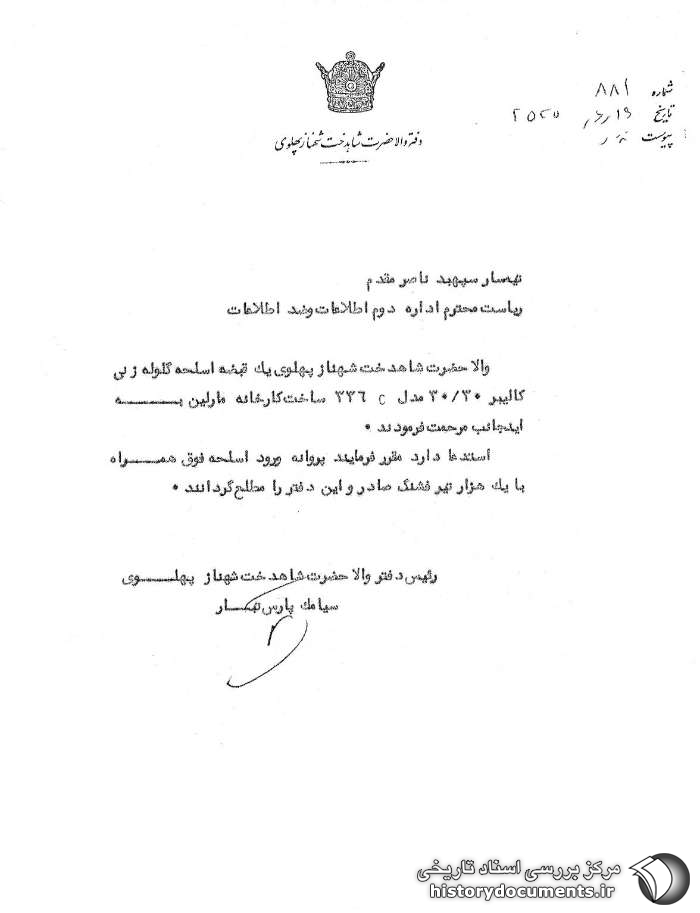 شماره ۸۸۱
تاریخ ۱۹
پیوست
دفتر والاحضرت شاهدخت شهناز پهلوی
تیمسار سپهبد ناصر مقدم
ریاست محترم اداره دوم اطلاعات وضد اطلاعات
والا حضرت شاهدخت شهناز پهلوی یك قبضه اسلحه گلوله زنی
کالیبر ۳۰/۳۰ مدل ۳۳۶ c ساخت کارخانه مارلین بـــــه
اینجانب مرحمت فرمودند ٠
استدعا دارد مقرر فرمایند پروانه ورود اسلحه فوق همـــراه
با یك هزار تیر فشنگ صادر و این دفتر را مطلع گردانند ٠
رئیس دفتر والا حضرت شاهدخت شهناز پهلـــــوی
سیامك پارس تبـــار
مرکز بررسی اسناد تاریخی
historydocuments.ir